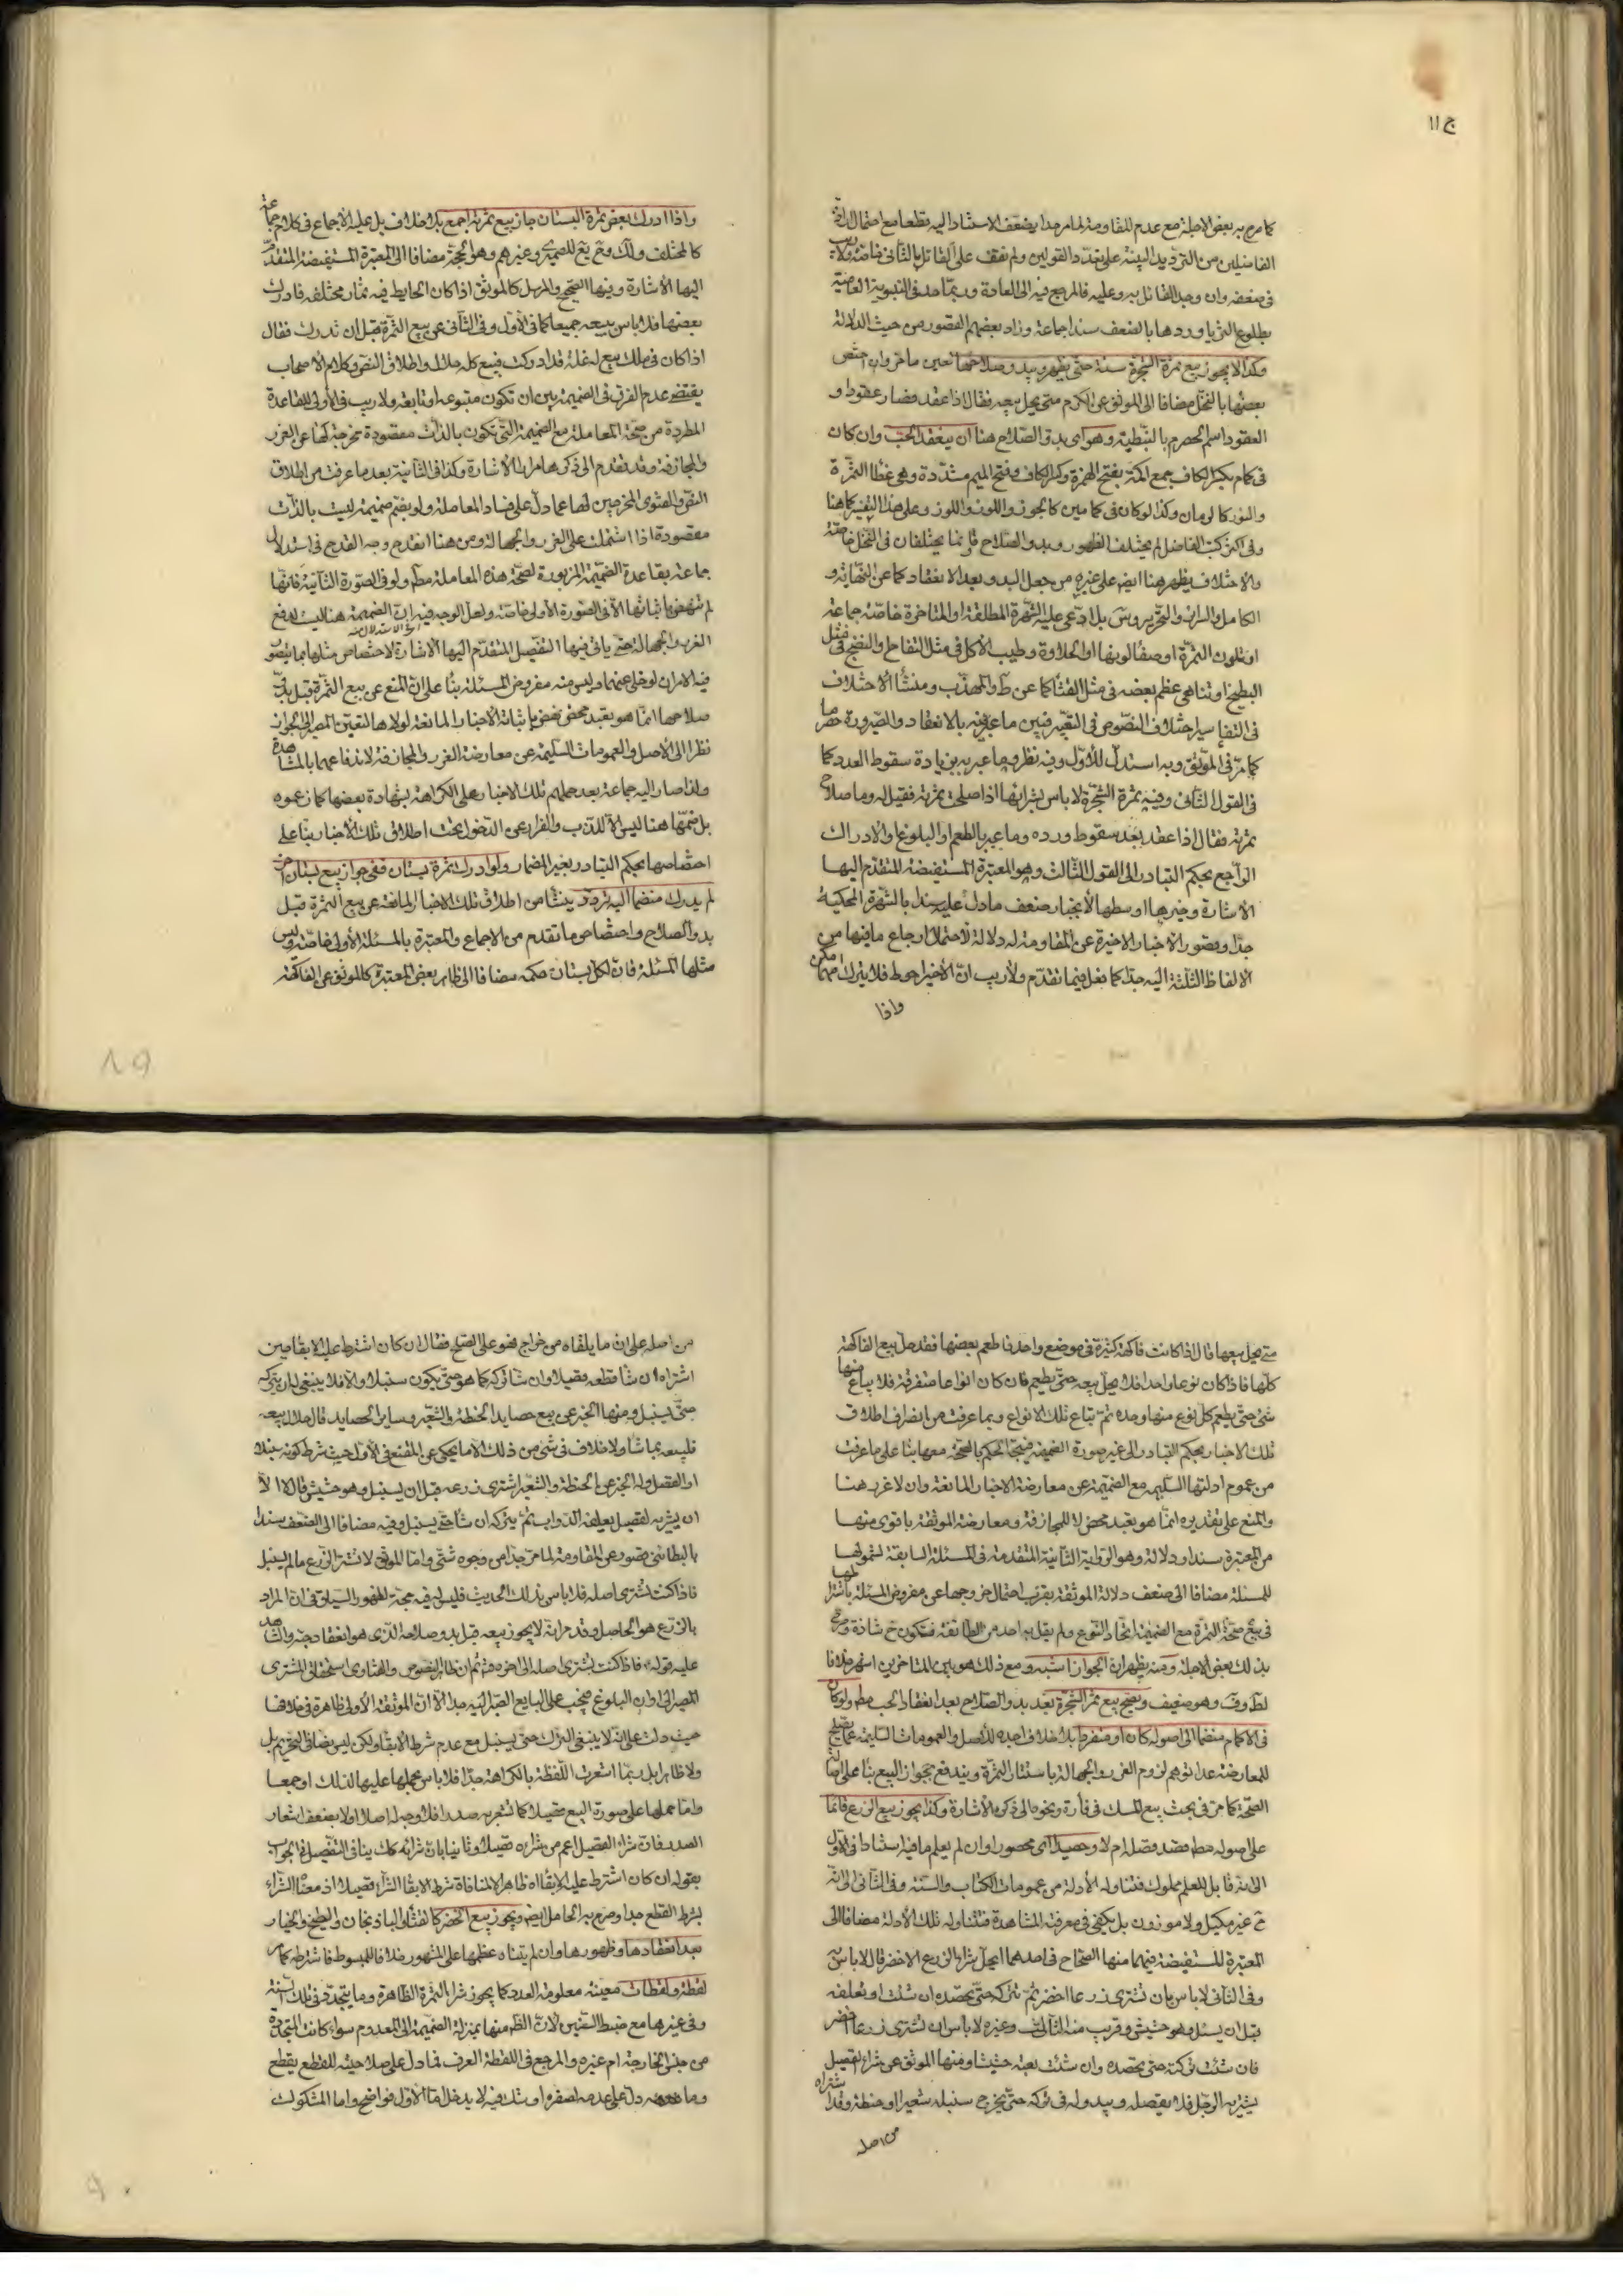 ج ١١
كما صرح به بعض الاجلة مع عدم المقاومة لما مر جدا يضعف الاستناد اليه قطعا مع احتمال ارادة
الفاضلين من الترديد البينة على تعدد القولين ولم نقف على القائل بالثاني خاصة ولا ريب
في ضعفه وان وجد القائل به وعليه فالمرجع فيه الى العادة وربما حد في النبوية العامية
بطلوع الثريا وردها بالضعف سندا جماعة وزاد بعضهم القصور من حيث الدلالة
وكذا لا يجوز بيع ثمرة الشجرة سنة حتى يظهر ويبدو صلاحها لعين ما مر وان اختص
بعضها بالنخل مضافا الى الموثق عن الكرم متى يحل بيعه فقال اذا عقد فصار عقودا و
العقود اسم الحصرم بالنبطية وهو اى بدو الصلاح هنا ان ينعقد الحب وان كان
في كمام بكسر الكاف جمع اكمة بفتح الهمزة وكسر الكاف وفتح الميم مشددة وهي غطاء الثمرة
والنور كالرمان وكذا لو كان في كمامين كالجوز واللوز وعلى هذا التفسير كما هنا
وفي اكثر كتب الفاضل لم يختلف الظهور وبدو الصلاح وانما يختلفان في النخل خاصة
والاختلاف يظهر هنا ايضا على غيره من جعل البدو بعد الانعقاد كما عن النهاية و
الكامل والسرائر والتحرير وس بل ادعى عليه الشهرة المطلقة او المتاخرة خاصة جماعة
او تلون الثمرة او صفا لونها او الحلاوة وطيب الاكل في مثل التفاح والنضج في مثل
البطيخ او تناهى عظم بعضه في مثل القثاء كما عن ط والمهذب ومنشأ الاختلاف
في التفاسير اختلاف النصوص في التعبير فبين ما عبر فيه بالانعقاد والصيرورة حصرما
كما مر في الموثق وبه استدل للاول وفيه نظر وما عبر به بن يادة سقوط العدد كما
في القول الثاني وفيه ثمرة الشجرة لا باس بشرائها اذا صلحت ثمرته فقيل له وما صلاح
ثمرته فقال اذا عقد بعد سقوط ورده وما عبر بالطعم والبلوغ والادراك
الراجع بحكم التبادر الى القول الثالث وهو المعتبرة المستفيضة المتقدم اليها
الاشارة وخيرها اوسطها لانجبار ضعف ما دل عليه سندا بالشهرة المحكية
جدا وبقصور الاخبار الاخيرة عن المقاومة له دلالة لاحتمال ارجاع ما فيها من
الالفاظ الثلثة اليه جدا كما فعل فيما تقدم ولا ريب ان الاخير احوط فلا يترك مهما امكن
واذا
واذا ادرك بعض ثمرة البستان جاز بيع ثمرته اجمع بلا خلاف بل عليه الاجماع في كلام جماعة
كالمختلف ولك وفخ يع للصيمري وغيرهم وهو الحجة مضافا الى المعتبرة المستفيضة المتقدم
اليها الاشارة وفيها الصحيح والمرسل كالموثق اذا كان الحايط فيه ثمار مختلفة فادرك
بعضها فلا باس ببيعه جميعا كما في الاول وفي الثاني عن بيع الثمرة قبل ان تدرك فقال
اذا كان في ملك بيع له غلة قد ادركت فبيع كله حلال واطلاق النص وكلام الاصحاب
يقتضي عدم الفرق في الضميمة بين ان تكون متبوعة او تابعة ولا ريب في الاولى للقاعدة
المطردة من صحة المعاملة مع الضميمة التي تكون بالذات مقصودة تخرجة لها عن الغرر
والمجازفة وقد تقدم الى ذكرها مرارا الاشارة وكذا في الثانية بعد ما عرفت من اطلاق
النص والفتوى المخرجين لها عما دل على فساد المعاملة ولو بضم ضميمة ليست بالذات
مقصودة اذا اشتملت على الغرر والجهالة ومن هنا انقدح وجه القدح في استدلال
جماعة بقاعدة الضميمة المزبورة لصحة هذه المعاملة مطلقا ولو في الصورة الثانية فانها
لم تنهض باثباتها الا في الصورة الاولى خاصة ولعل الوجه فيه ان الضميمة هنا ليست لدفع
الغرر والجهالة حتى ياتي فيها التفصيل المتقدم اليها الاشارة لاختصاص مثلها بما يتصور
فيه الامران لو خلى عنهما وليس منه مفروض المسئلة بناء على ان المنع عن بيع الثمرة قبل بدو
صلاحها انما هو تعبد محض نهض باثباته الاخبار المانعة لولاها لتعين المصير الى الجواز
نظرا الى الاصل والعمومات السليمة عن معارضة الغرر والمجازفة لاندفاعهما بالمشاهدة
ولذا صار اليه جماعة بعد حملهم تلك الاخبار على الكراهة بشهادة بعضها كما زعموه
بل ضمها هنا ليس الا للذب والفرار عن الدخول تحت اطلاق تلك الاخبار بناء على
اختصاصها بحكم التبادر بغير المضمار ولو ادرك ثمرة بستان ففي جواز بيع بستان اخر
لم يدرك منضما اليه تردد ينشأ من اطلاق تلك الاخبار المانعة عن بيع الثمرة قبل
بدو الصلاح واختصاص ما تقدم من الاجماع والمعتبرة بالمسئلة الاولى خاصة وليس
مثلها المسئلة فان لكل بستان حكمه مضافا الى ظاهر بعض المعتبرة كالموثق عن الفاكهة
متى يحل بيعها قال اذا كانت فاكهة كثيرة في موضع واحد فاطعم بعضها فقد حل بيع الفاكهة
كلها فاذا كان نوعا واحدا فلا يحل بيعه حتى يطعم فان كان انواعا متفرقة فلا يباع منها
شئ حتى يطعم كل نوع منها وحده ثم تباع تلك الانواع وبما عرفت من انصراف اطلاق
تلك الاخبار بحكم التبادر الى غير صورة الضميمة فيتجه الحكم بالصحة معها بناء على ما عرفت
من عموم ادلتها السليمة مع الضميمة عن معارضة الاخبار المانعة وان لا غرر هنا
والمنع على تقديره انما هو تعبد محض لا للمجازفة ومعارضة الموثقة باقوى منها
من المعتبرة سندا ودلالة وهو الرواية الثانية المتقدمة في المسئلة السابقة لشمولها
للمسئلة مضافا الى ضعف دلالة الموثقة بقرب احتمال خروجها عن مفروض المسئلة باشتراطها
في بيع صحة الثمرة مع الضميمة اتحاد النوع ولم يقل به احد من الطائفة فتكون ح شاذة وصرح
بذلك بعض الاجلة ومنه يظهر ان الجواز اشبه ومع ذلك هو بين المتاخرين اشهر خلافا
لط وف وهو ضعيف ويصح بيع ثمر الشجرة بعد بدو الصلاح بعد انعقاد الحب مط ولو كان
في الاكمام منضما الى اصوله كان او منفردا بلا خلاف اجده للاصل والعمومات السليمة عما يصلح
للمعارضة عدا توهم لزوم الغرر والجهالة باستتار الثمرة ويندفع بجواز البيع بناء على اصالة
الصحة كما مر في بحث بيع المسك في فأرة ونحوه الى ذكره الاشارة وكذا يجوز بيع الزرع قائما
على اصوله مط قصد فصله ام لا وحصيدا اى محصورا وان لم يعلم ما فيه استنادا في الاول
الى انه قابل للعلم مملوك فتناوله الادلة من عمومات الكتاب والسنة وفي الثاني الى انه
ح غير مكيل ولا موزون بل يكفي في معرفته المشاهدة فتتناوله تلك الادلة مضافا الى
المعتبرة المستفيضة فيهما منها الصحاح في احدهما ايحل شراء الزرع الاخضر قال لا باس به
وفي الثاني لا باس بان تشتري زرعا اخضر ثم تتركه حتى تحصده ان شئت او تعلفه
قبل ان يسنبل وهو حشيش وقريب منه الثالث وغيره لا باس ان تشتري زرعا اخضر
فان شئت تركته حتى تحصده وان شئت بعته حشيشا ومنها الموثق عن شراء القصيل
يشتريه الرجل فلا يقصله ويبدو له في تركه حتى يخرج سنبله شعيرا او حنطة وقد اشتراه
من اصله
من اصله على ان ما يلقاه من خراج فهو على العلج فقال ان كان اشترط عليه الابقاء حين
اشتراه ان شاء قطعه قصيلا وان شاء تركه كما هو حتى يكون سنبلا والا فلا ينبغي له ان يتركه
حتى يسنبل ومنها الخبر عن بيع حصايد الحنطة والشعير وساير الحصايد قال حلال بيعه
فليبعه بما شاء ولا خلاف في شئ من ذلك الا ما يحكى عن المقنع في الاول حيث شرط كونه سنبلا
او القصل وله الخبر عن الحنطة والشعير اشترى زرعه قبل ان يسنبل وهو حشيش قال لا الا
ان يشتريه لقصيل يعلفه الدواب ثم يتركه ان شاء حتى يسنبل وفيه مضافا الى الضعف سندا
بالبطائني قصور عن المقاومة لما مر جدا من وجوه شتى واما الموثق لا تشتر الزرع ما لم يسنبل
فاذا كنت تشتري اصله فلا باس بذلك الحديث فليس له فيه حجة لظهور السياق في ان المراد
بالزرع هو الحاصل وقد مر انه لا يجوز بيعه قبل بدو صلاحه الذي هو انعقاد حبه والشاهد
عليه قوله فاذا كنت تشتري اصله الى اخره ثم ان ظاهر النصوص والفتاوى استحقاق المشتري
المصير الى اوان البلوغ فيجب على البايع الصبر اليه جدا الا ان الموثقة الاولى ظاهرة في خلافها
حيث دلت على انه لا ينبغي الترك حتى يسنبل مع عدم شرط الابقاء ولكن ليس نصا في التحريم بل
ولا ظاهرا بل ربما اشعرت اللفظة بالكراهة جدا فلا باس بحملها عليها لذلك او جمعا
واما حملها على صورة البيع قصيلا كما تشعر به صدرا فلا وجه له اصلا اولا بضعف اشعار
الصدر فان شراء القصيل اعم من شرائه قصيلا وثانيا بان شرائه كك ينافي التفصيل في الجواب
بقوله ان كان اشترط عليه الابقاء اه ظاهر المنافاة شرط الابقاء الشراء قصيلا اذ معناه الشراء
بشرط القطع جدا وصرح به الحامل ايضا ويجوز بيع الخضر كالقثاء والباذنجان والبطيخ والخيار
بعد انعقادها وظهورها وان لم يتناه عظمها على المشهور خلافا للمبسوط فاشترطه كما مر
لقطة ولقطات معينة معلومة العدد كما يجوز شراء الثمرة الظاهرة وما يتجدد في تلك السنة
وفي غيرها مع ضبط السنين لان الظاهر منها بمنزلة الضميمة الى المعدوم سواء كانت المتجددة
من جنس الخارجة ام غيره والمرجع في اللقطة العرف فما دل على صلاحيته للقطع يقطع
وما دل على عدمه لصغره او شك فيه لا يدخل اما الاول فواضح واما المشكوك